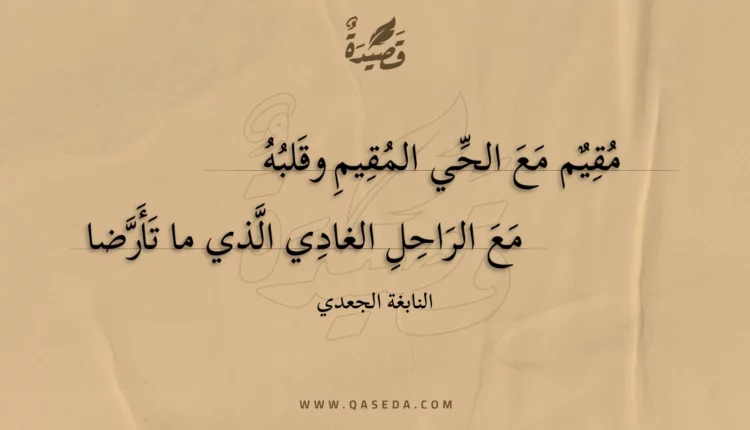 قَصِيدَةٌ
مُقِيْمٌ مَعَ الحِّي المُقِيمِ وقَلبُهُ
مَعَ الرَاحِلِ الغادِي الَّذي ما تَأَرَّضا
النابغة الجعدي
WWW.QASEDA.COM